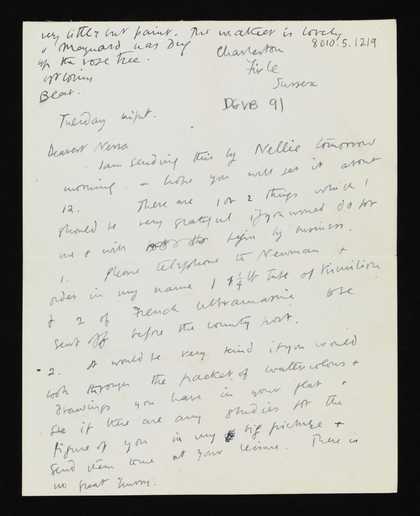 very little but paint. The weather is lovely
& Maynard was
up the rose tree.
Bear.
8010.5.1219
Charleston
Firle
Sussex
DGVB 91
Tuesday night.
Dearest Nessa
I am sending this by Nellie tomorrow
morning – hope you will see it about
12. There are 1 or 2 things which I
should be very grateful if you would do for
me & will begin by business.
1. Please telephone to Newman &
order in my name 1 lb tube of
& 2 of French Ultramarine to be
sent off before the country post.
2. It would be very kind if you would
look through the packet of watercolours &
drawings you have in your flat &
see if there are any studies for the
figure of you in my big picture &
send them to me at your leisure. There is
no great hurry.